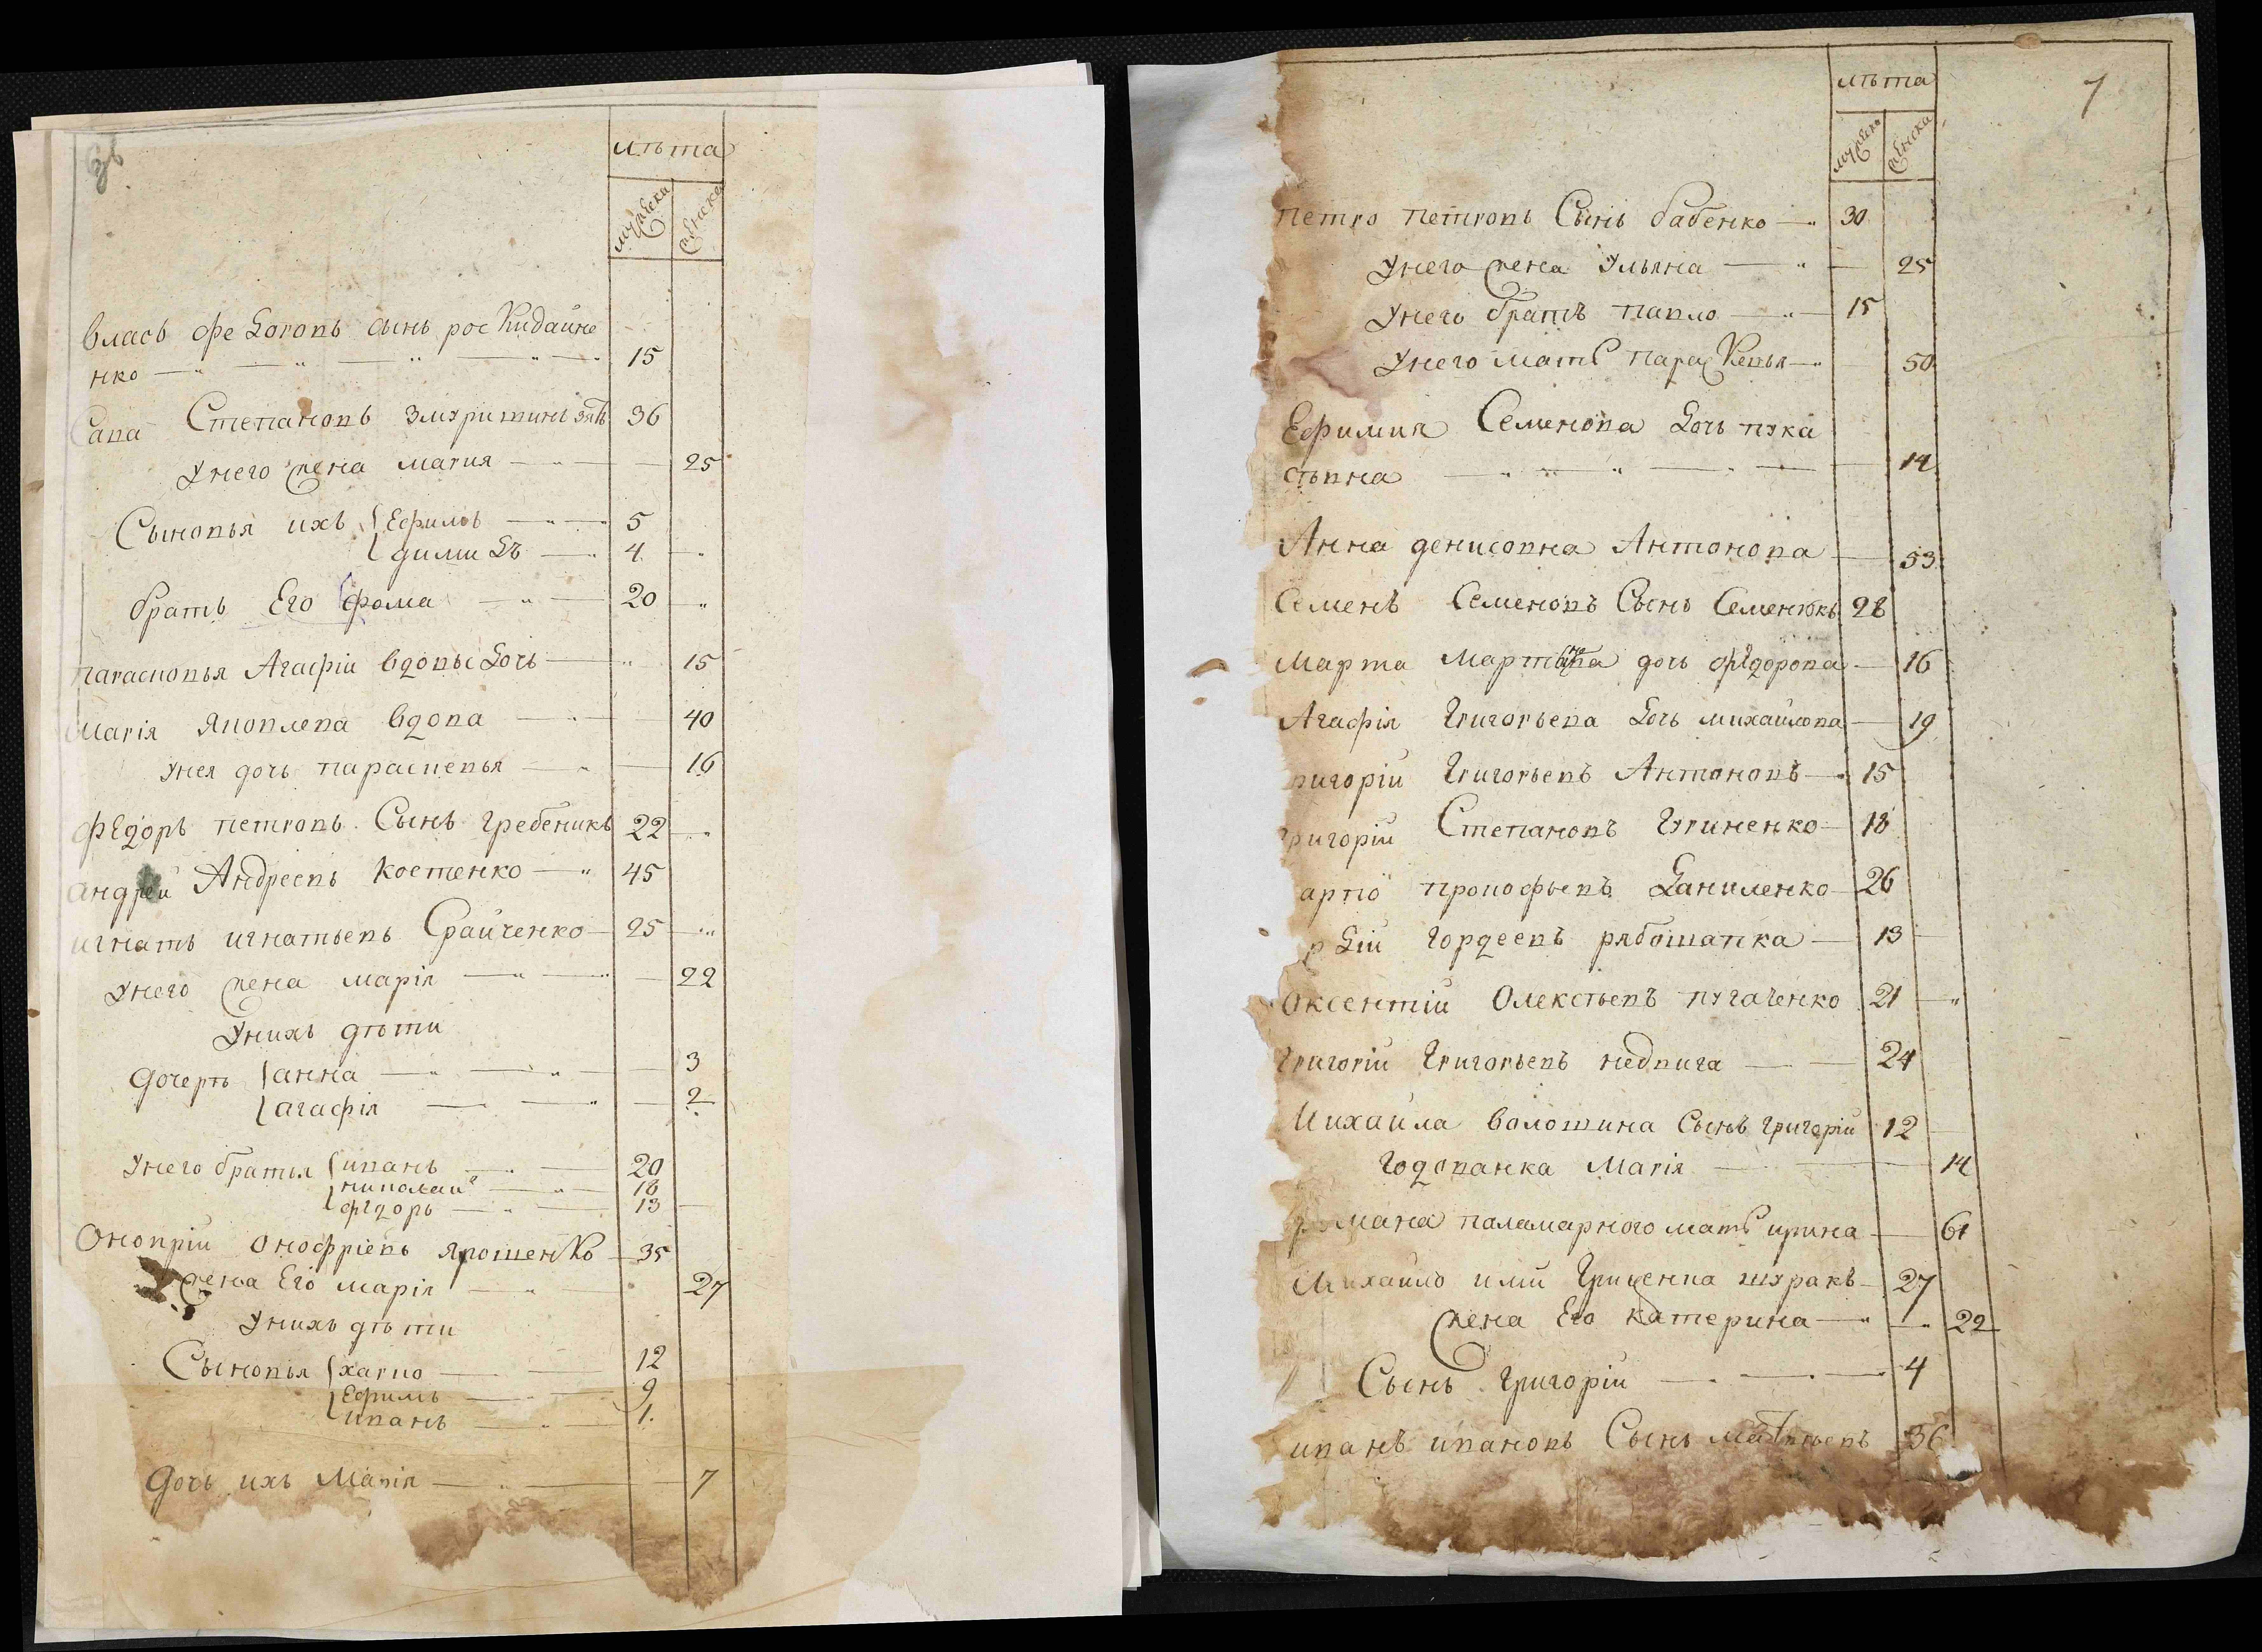 лѣта
мужеска женска
власъ Федоровъ сынъ роскидайне
нко 15
Сава Степановъ змуритинъ зять 36
унего жена мария 25
Сыновья ихъ Ефимъ 5
димидъ 4
братъ Его Фома 20
парасковья Агафіи вдовы дочь 15
марія яковлева вдова 40
унея дочь параскевья 16
Фёдоръ петровъ Сынъ гребеникъ 22
андрей Андреевъ костенко 45
игнатъ игнатьевъ 25
унего жена марія 22
унихъ дѣти
дочерѣ анна 3
агафія 2
унего братья иванъ 20
николай 18
фёдоръ 13
Онопрій онофріевъ ярошенко 35
жена Его марія 27
унихъ дѣти
Сыновія харко 12
Ефимъ 9
иванъ 1
дочь ихъ Марія 7
7
лѣта
мужеска женска
петро петровъ Сынъ бабенко 30
унего жена ульяна 25
унего братъ павло 15
унего мать параскевья 50
Ефимия Семенова дочь пука
стьвна 14
Анна денисовна Антонова 53
Семенъ Семеновъ Сынъ Семенюкъ 28
Марта дочь фёдорова 16
Агафія Григорьева дочь михайлова 19
ригорій Григорьевъ Антоновъ 15
григорій Степановъ Гуриненко 18
арпо прокофьевъ даниленко 26
рдій гордеевъ рябошапка 13
Оксентій Олексѣевъ пугаченко 21
Григорій Григорьевъ недвига 24
Михайла волошина Сынъ григорій 12
годованка Марія 14
романа паламарного мать ирина 61
Михайло или Гриценка шуракъ 27
жена Его катерина 22
Сынъ Григорій 4
иванъ ивановъ Сынъ матвѣевъ 36